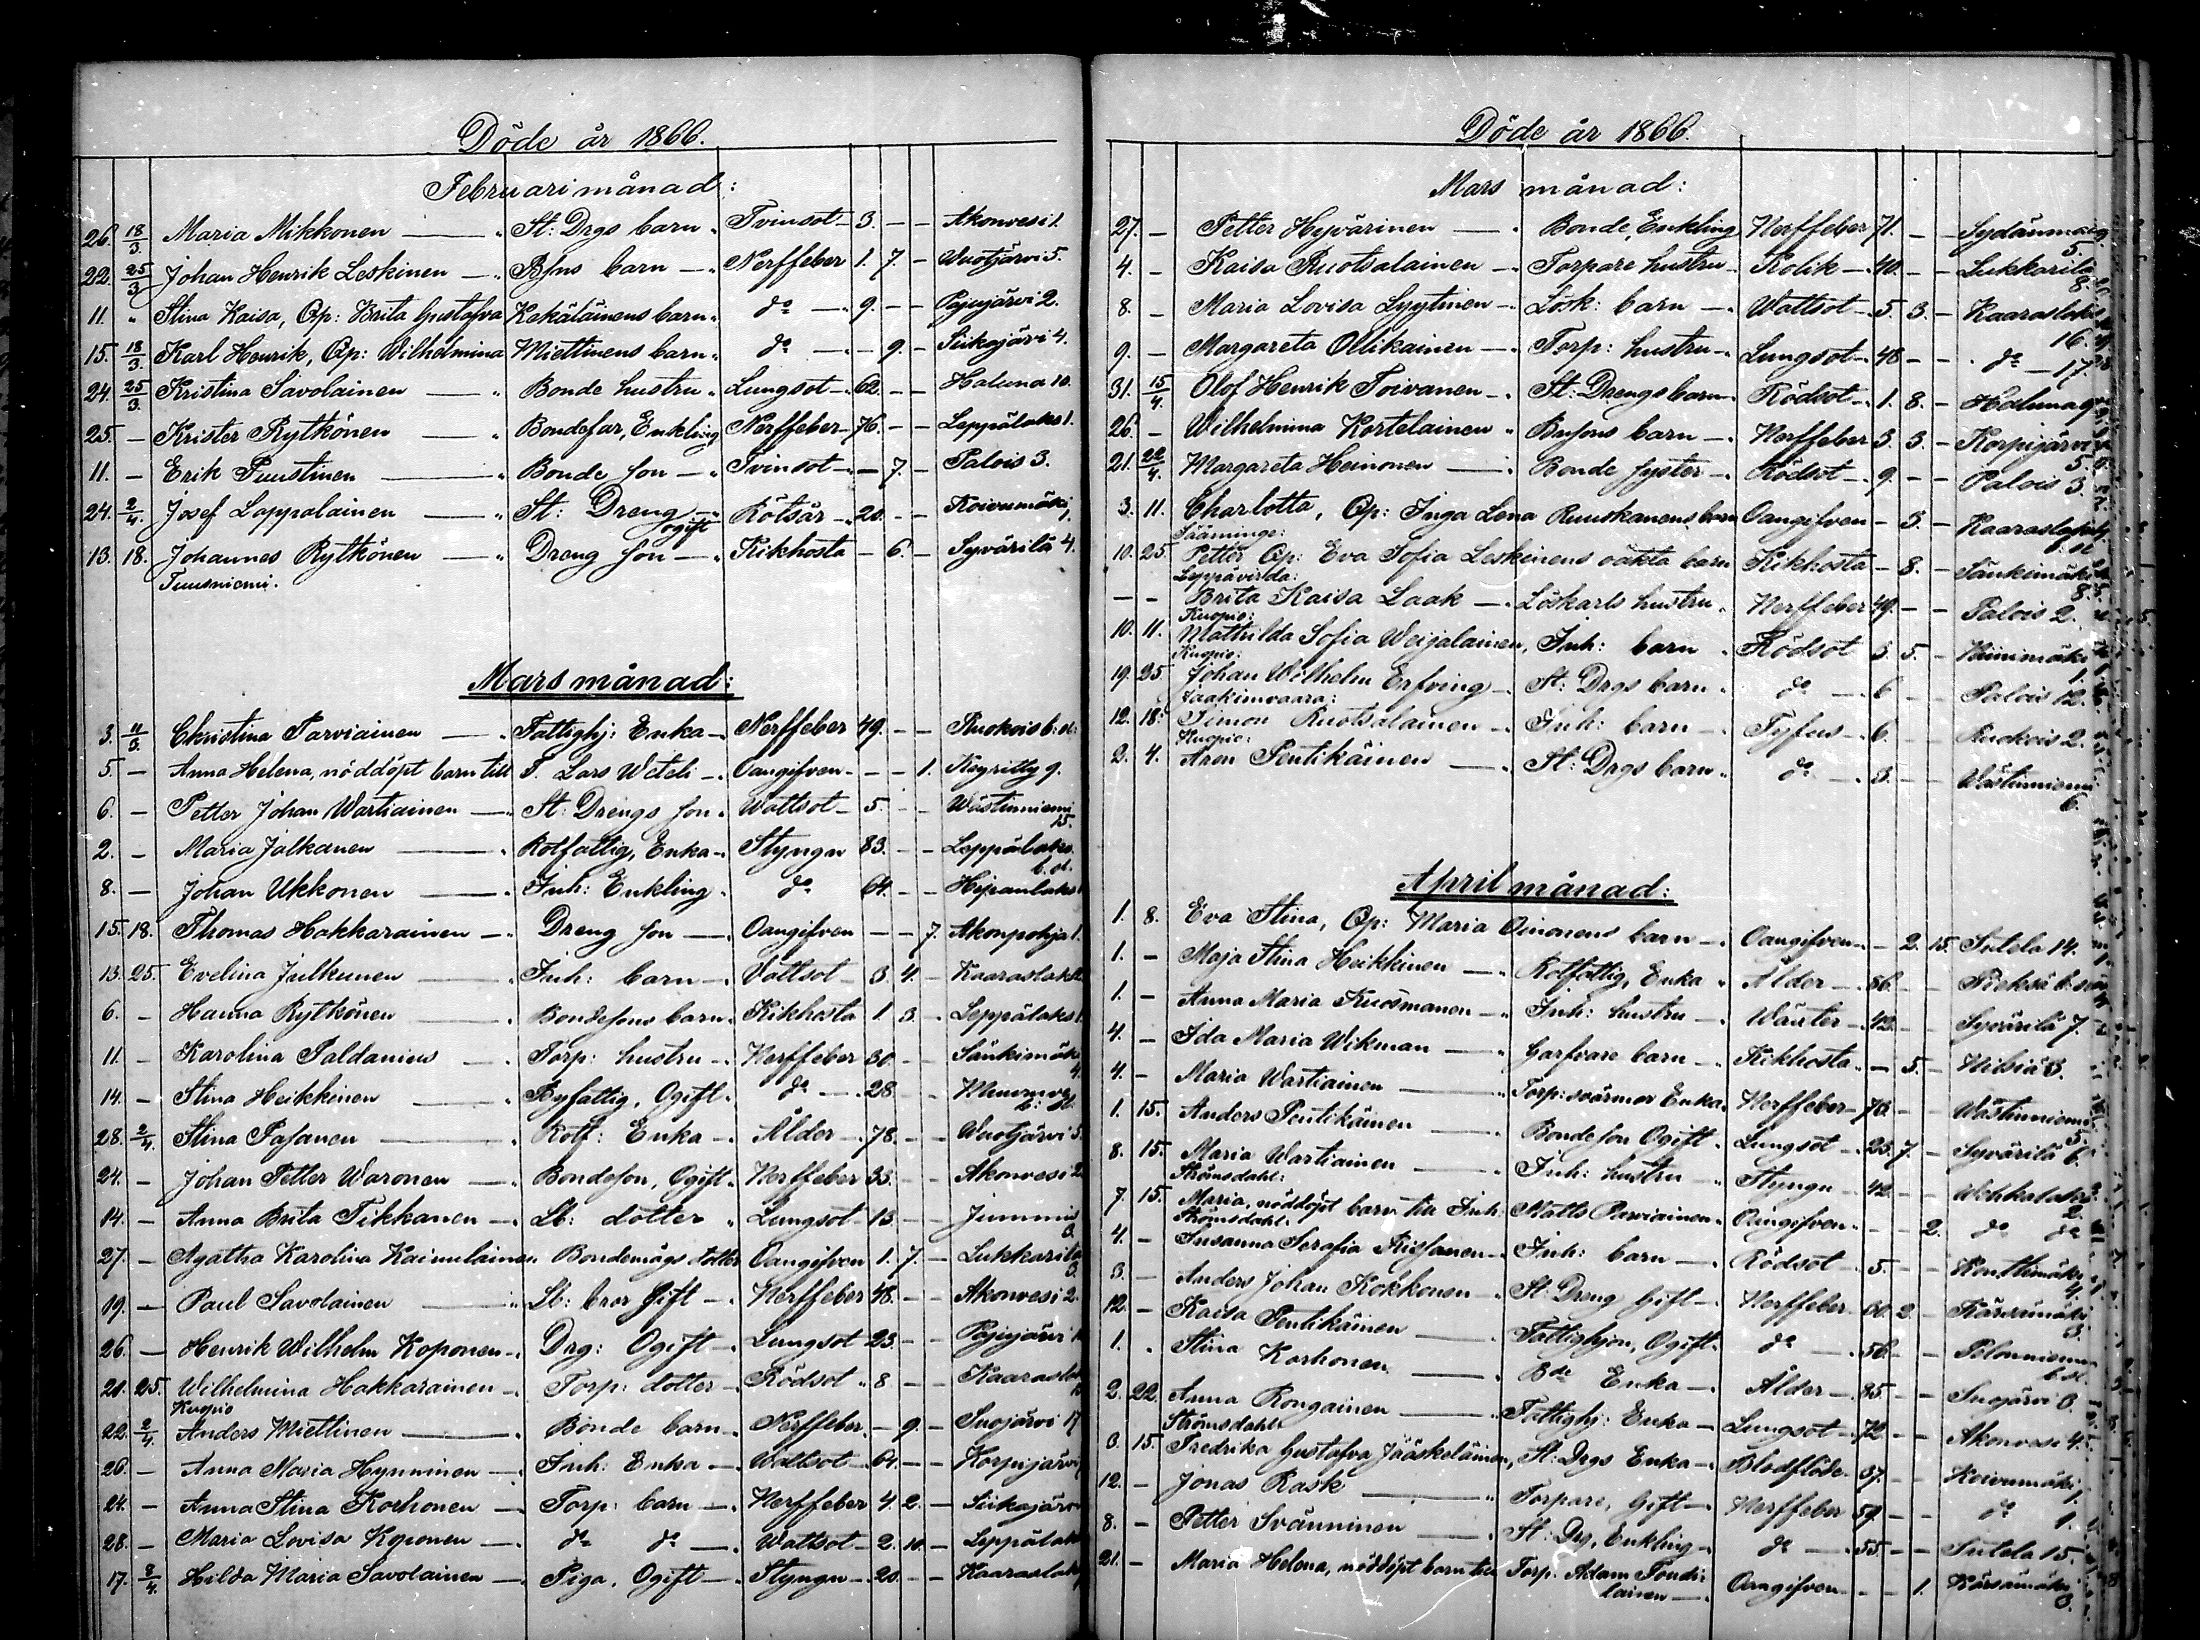 Döde år 1866.
Februari månad:
26. 18/3 Maria Mikkonen — St: Drgs barn Tvinsot 3. — — Akonvesi 1.
22. 25/3 Johan Henrik Leskinen — Bfns barn — Nerffeber 1. 7. — Wuotjärvi 5.
11. " Stina Kaisa, Qp: Brita Gustafva Kekäläinens barn do — 9. — — Pajujärvi 2.
15. 18/3 Karl Henrik, Qp: Wilhelmina Miettinens barn do — — 9. — Siikajärvi 4.
24. 25/3. Kristina Savolainen — Bonde hustru Lungsot 62. — — Haluna 10.
25. — Krister Rytkönen — Bondefar, Enkling Nerffeber 76. — — Leppälaks 1.
11. — Erik Puustinen — Bonde son — Tvinsot — 7. — Palois 3.
24. 2/4. Josef Lappalainen — St: Dreng ogift Rötsår 20. — — Koivumäki 1.
13. 18. Johannes Rytkönen — Dreng son — Kikhosta — 6. — Syvärilä 4.
Tuusniemi.
Mars månad:
3. 11/3. Christina Parviainen — Fattighj: Enka Nerffeber 49. — — Ruokois b: st:
5. — Anna Helena, nöddöpt barn till T. Lars Weteli Oangifven — — 1. Keyritty 9.
6. — Petter Johan Wartiainen — St: Drengs son Wattsot 5 — — Wästinniemi 15.
2. — Maria Jalkanen — Rotfattig, Enka Styngn 83. — — Leppälaks. b. st.
8. — Johan Ukkonen — Inh: Enkling do 64. — —
15. 18. Thomas Hakkarainen — Dreng son — Oangifven — — 7. Akonpohja 1.
13. 25. Evelina Julkunen — Inh: barn — Wattsot 3. 4. — Kaaraslaks
6. — Hanna Rytkönen — Bondesons barn Kikhosta 1 3. — Leppälaks 1.
11. — Karolina Paldanius — Torp: hustru Nerffeber 30. — — Sänkimäki 4.
14. — Stina Heikkinen — Byfattig, Ogift do — 28. — —
28. 2/4 Stina Pasanen — Rotf: Enka Ålder 78. — — Wuotjärvi 5.
24. — Johan Petter Waronen — Bondeson, Ogift Nerffeber 33. — — Akonvesi 2.
14. — Anna Brita Tikkanen — Lb: dotter Lungsot 13. — —
27. — Agatha Karolina Kaimulainen Bondemågs dotter Oangifven 1. 7. — Lukkarila 3.
19. — Paul Savolainen — Lb: bror Gift Nerffeber 48. — — Akonvesi 2.
26. — Henrik Wilhelm Koponen Drg: Ogift Lungsot 23. — — Pajujärvi
20. 25. Wilhelmina Hakkarainen Torp: dotter Rödsot 8 — — Kaaraslaks
Kuopio
22. 2/4. Anders Miettinen — Bonde barn Nerffeber — 9. — Suojärvi 17
26. — Anna Maria Hynninen Inh: Enka Wattsot 64. — — Korpijärvi
24. — Anna Stina Korhonen Torp: barn Nerffeber 4. 2. — Siikajärvi
28. — Maria Lovisa Koponen do do Wattsot 2. 10. — Leppälaks
17. 8/4. Hilda Maria Savolainen Piga, Ogift Styngn 20. — — Kaaraslaks
Döde år 1866.
Mars månad:
27. — Petter Hyvärinen — Bonde, Enkling Nerffeber 71. — — Sydänmaa 5.
4. — Kaisa Ruotsalainen Torpare hustru Kolik 40. — — Lukkarila 8.
8. — Maria Lovisa Lyytinen Lösk: barn Wattsot 5. 3. — Kaaraslaks 16.
9. — Margareta Ollikainen Torp: hustru Lungsot 48 — — do 17.
31. 15/4. Olof Henrik Toivanen St: Drengs barn Rödsot 1. 8. — Haluna 9.
26. — Wilhelmina Kortelainen Bnsons barn Nerffeber 3. 3. — Korpijärvi 5.
21. 22/4. Margareta Heinonen Bonde syster Rödsot 9. — — Palois 3.
3. 11. Charlotta, Qp: Inga Lena Ruuskanens barn Oangifven — 3. — Kaaraslaks
Sääminge:
10. 25. Petter Qp: Eva Sofia Leskinens oäkta barn Kikhosta — 8. — Sänkimäki 8.
Leppävirda:
— — Brita Kaisa Laak — Löskarls hustru Nerffeber 49. — — Palois 2.
Kuopio:
10. 11. Mathilda Sofia Weijalainen, Inh: barn Rödsot 3. 5. — Niinimäki 1.
Kuopio:
19. 25 Johan Wilhelm Erfving St: Drgs barn do 6 — — Palois 12.
Jaakimvaara:
12. 18. Simon Ruotsalainen Inh: barn Tyfus 6. — — Ruokois 2.
Kuopio:
2. 4. Aron Pentikäinen St: Drgs barn do 3. — — Wästinniemi 6.
April månad:
1. 8. Eva Stina, Qp: Maria Oinonens barn Oangifven — 2. 15. Sutela 14.
1. — Maja Stina Heikkinen Rotfattig, Enka Ålder 86. — —
1. — Anna Maria Kuosmanen Inh: hustru Wärter 42. — — Syvärilä 7.
4. — Ida Maria Wikman Garfvare barn Kikhosta — 5. — Nilsiä 3.
4. — Maria Wartiainen Torp: svärmor Enka Nerffeber 70. — — Wästinniemi 5.
1. 15. Anders Pentikäinen Bondeson Ogift Lungsot 23. 7. — Syvärilä 6.
8. 15. Maria Wartiainen Inh: hustru Styngn 42. — — Wehkalaks 2.
Strömsdahl:
7. 15. Maria, nöddöpt barn till Inh: Matts Parviainen Oangifven — — 2. do do
Strömsdahl:
4. — Susanna Serafia Riissanen Inh: barn Rödsot 5. — — Konttimäki 4.
3. — Anders Johan Kokkonen St: Dreng Gift Nerffeber 30. 2. — Kärsämäki 3.
12. — Kaisa Pentikäinen Fattighjon, Ogift do 56. — — Pelonniemi b. st.
1. . Stina Korhonen Bde Enka Ålder 85. — — Suojärvi 3.
2. 22. Anna Rongainen Fattighj: Enka Lungsot 72. — — Akonvesi 4.
Strömsdahl:
3. 15. Fredrika Gustafva Jääskeläinen, St: Drgs Enka Blodflöde 37. — — Koivumäki 1.
12. — Jonas Rask Torpare, Gift Nerffeber 59. — — do 1.
8. — Petter Svänninen St: Drg, Enkling do 55. — — Sutela 15.
21. — Maria Helena, nöddöpt barn till Torp. Adam Tondilainen Oangifven — — 1. Kärsämäki 3.